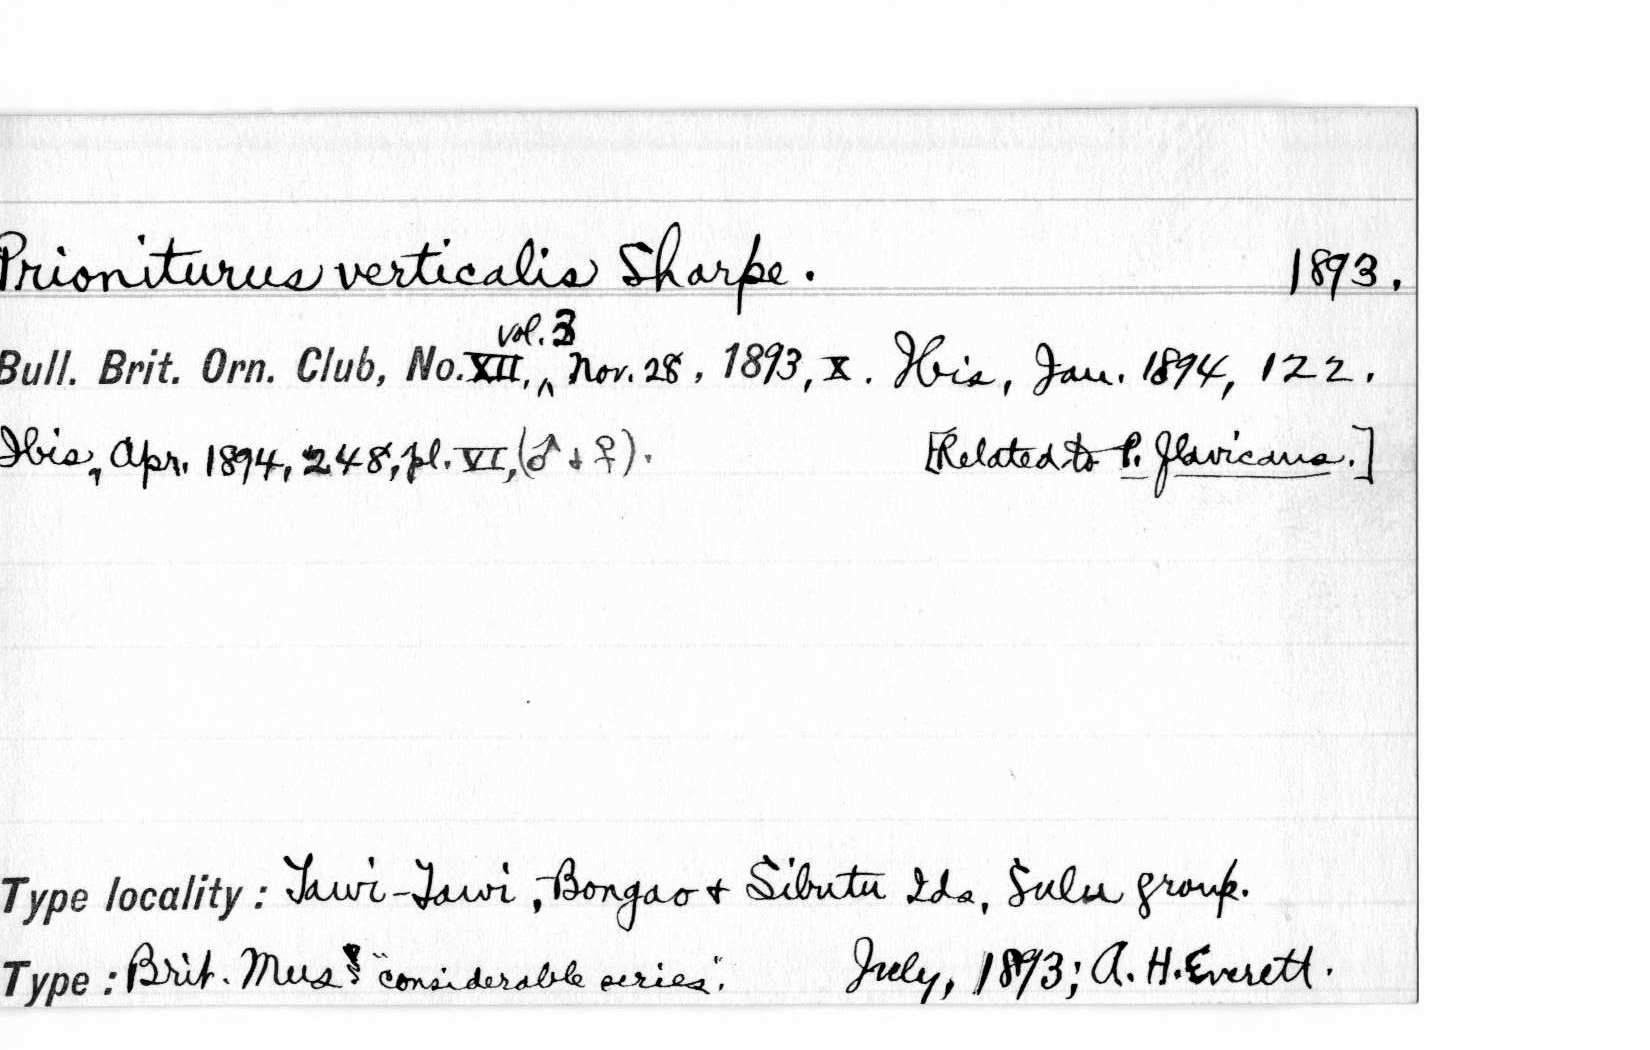 Prioniturus verticalis Sharpe. 1893.
Bull. Brit. Orn. Club, No. XII, vol. 3 Nov. 28, 1893, X. Ibis, Jan. 1894, 122.
Ibis, Apr. 1894, 248, pl. VI, (♂ + ♀). [Related to P. flavicans.]
Type locality: Tawi-Tawi, Bongao + Sibutu Ids, Sulu group.
Type: Brit. Mus. "considerable series". July, 1893; A. H. Everett.